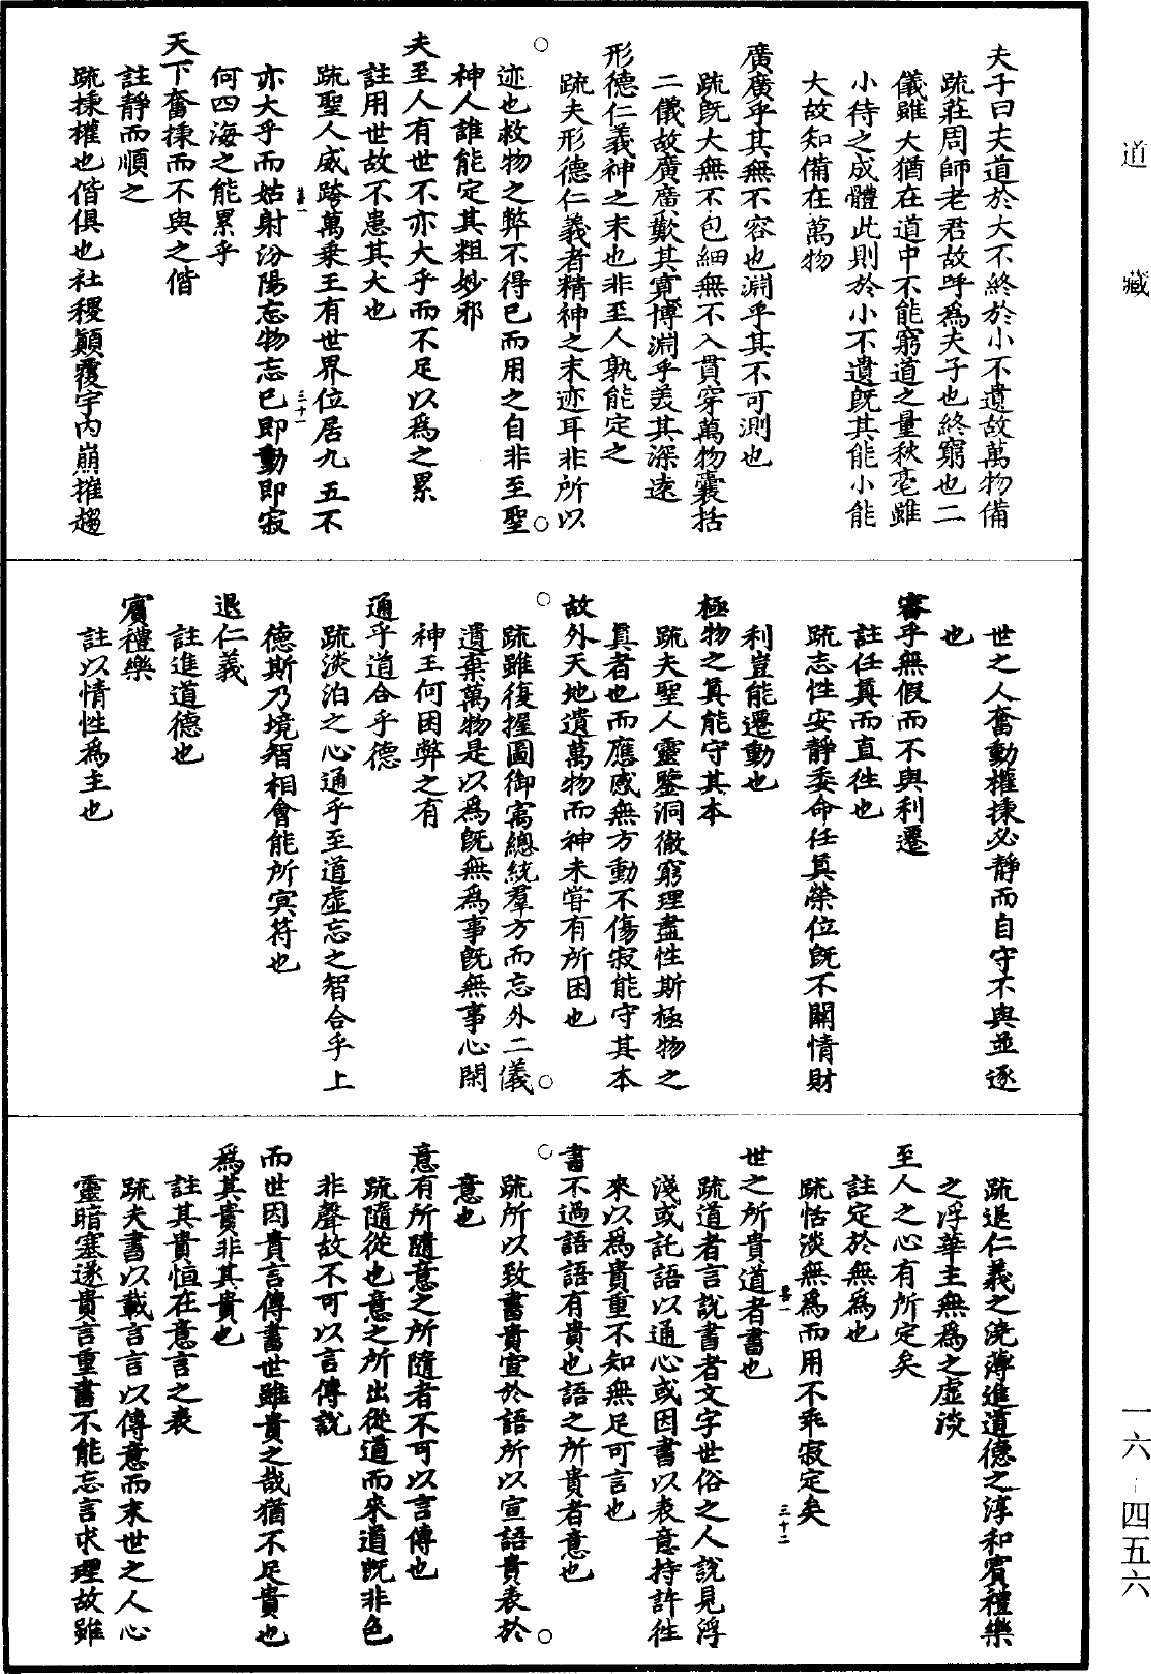 道藏
夫子曰夫道於大不終於小不遺故萬物備
疏莊周師老君故呼爲夫子也終窮也二
儀雖大猶在道中不能窮道之量秋毫雖
小待之成體此則於小不遺旣其能小能
大故知備在萬物
廣廣乎其無不容也淵乎其不可測也
疏旣大無不包細無不入貫穿萬物囊括
二儀故廣廣歎其寬博淵乎羙其深遠
形德仁義神之末也非至人孰能定之
疏夫形德仁義者精神之末迹耳非所以
迹也救物之弊不得已而用之自非至聖
神人誰能定其粗妙邪
夫至人有世不亦大乎而不足以爲之累
註用世故不患其大也
疏聖人威跨萬乗王有世界位居九五不
亦大乎而姑射汾陽忘物忘已即動即寂
何四海之能累乎
天下奮㨡而不與之偕
註靜而順之
疏㨡權也偕俱也社稷顛覆宇内崩摧趨
三十一
世之人奮動權㨡必靜而自守不與並逐
也
審乎無假而不與利遷
註任眞而直徃也
疏志性安靜委命任眞榮位旣不關情財
利豈能遷動也
極物之眞能守其本
疏夫聖人靈鑒洞徹窮理盡性斯極物之
眞者也而應感無方動不傷寂能守其本
故外天地遺萬物而神未甞有所困也
疏雖復握圖御㝢總統羣方而忘外二儀
遺棄萬物是以爲旣無爲事旣無事心閑
神王何困弊之有
通乎道合乎德
疏淡泊之心通乎至道虛忘之智合乎上
德斯乃境智相會能所冥符也
退仁義
註進道德也
賔禮樂
註以情性爲主也
疏退仁義之澆薄進道德之淳和賔禮樂
之浮華主無爲之虛淡
至人之心有所定矣
註定於無爲也
疏恬淡無爲而用不乖寂定矣
三十二
世之所貴道者書也
疏道者言說書者文字世俗之人說見浮
淺或託語以通心或因書以表意持許徃
來以爲貴重不知無足可言也
書不過語語有貴也語之所貴者意也
疏所以致書貴宣於語所以宣語貴表於
意也
意有所隨意之所隨者不可以言傳也
疏隨從也意之所出從道而來道旣非色
非聲故不可以言傳說
而世因貴言傳書世雖貴之哉猶不足貴也
爲其貴非其貴也
註其貴恒在意言之表
疏夫書以載言言以傳意而末世之人心
靈暗塞遂貴言重書不能忘言求理故雖
一六-四五六